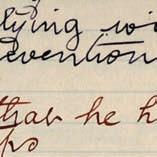 lying wi
evention
that he h